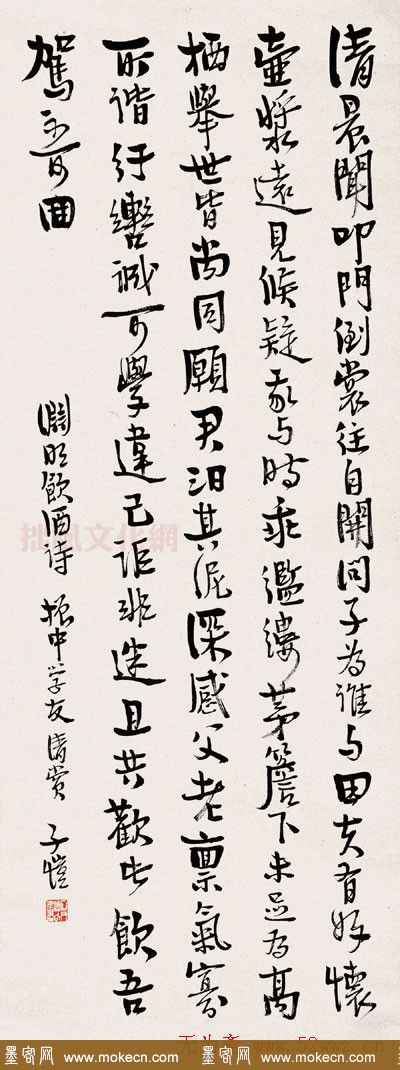 清晨聞叩門倒裳往自開問子為誰与田夫有好懷
壺漿遠見候疑我与時乖襤縷茅簷下未足為高
栖舉世皆尚同願君汩其泥深感父老禀氣寡
所諧紆轡誠可學違己詎非迷且共歡此飲吾
駕不可回
淵明飲酒詩 振中学友清賞 子愷
拙風文化網
墨客网 www.mokecn.com 墨客网 www.mokecn.com 墨客网 www.mokecn.com